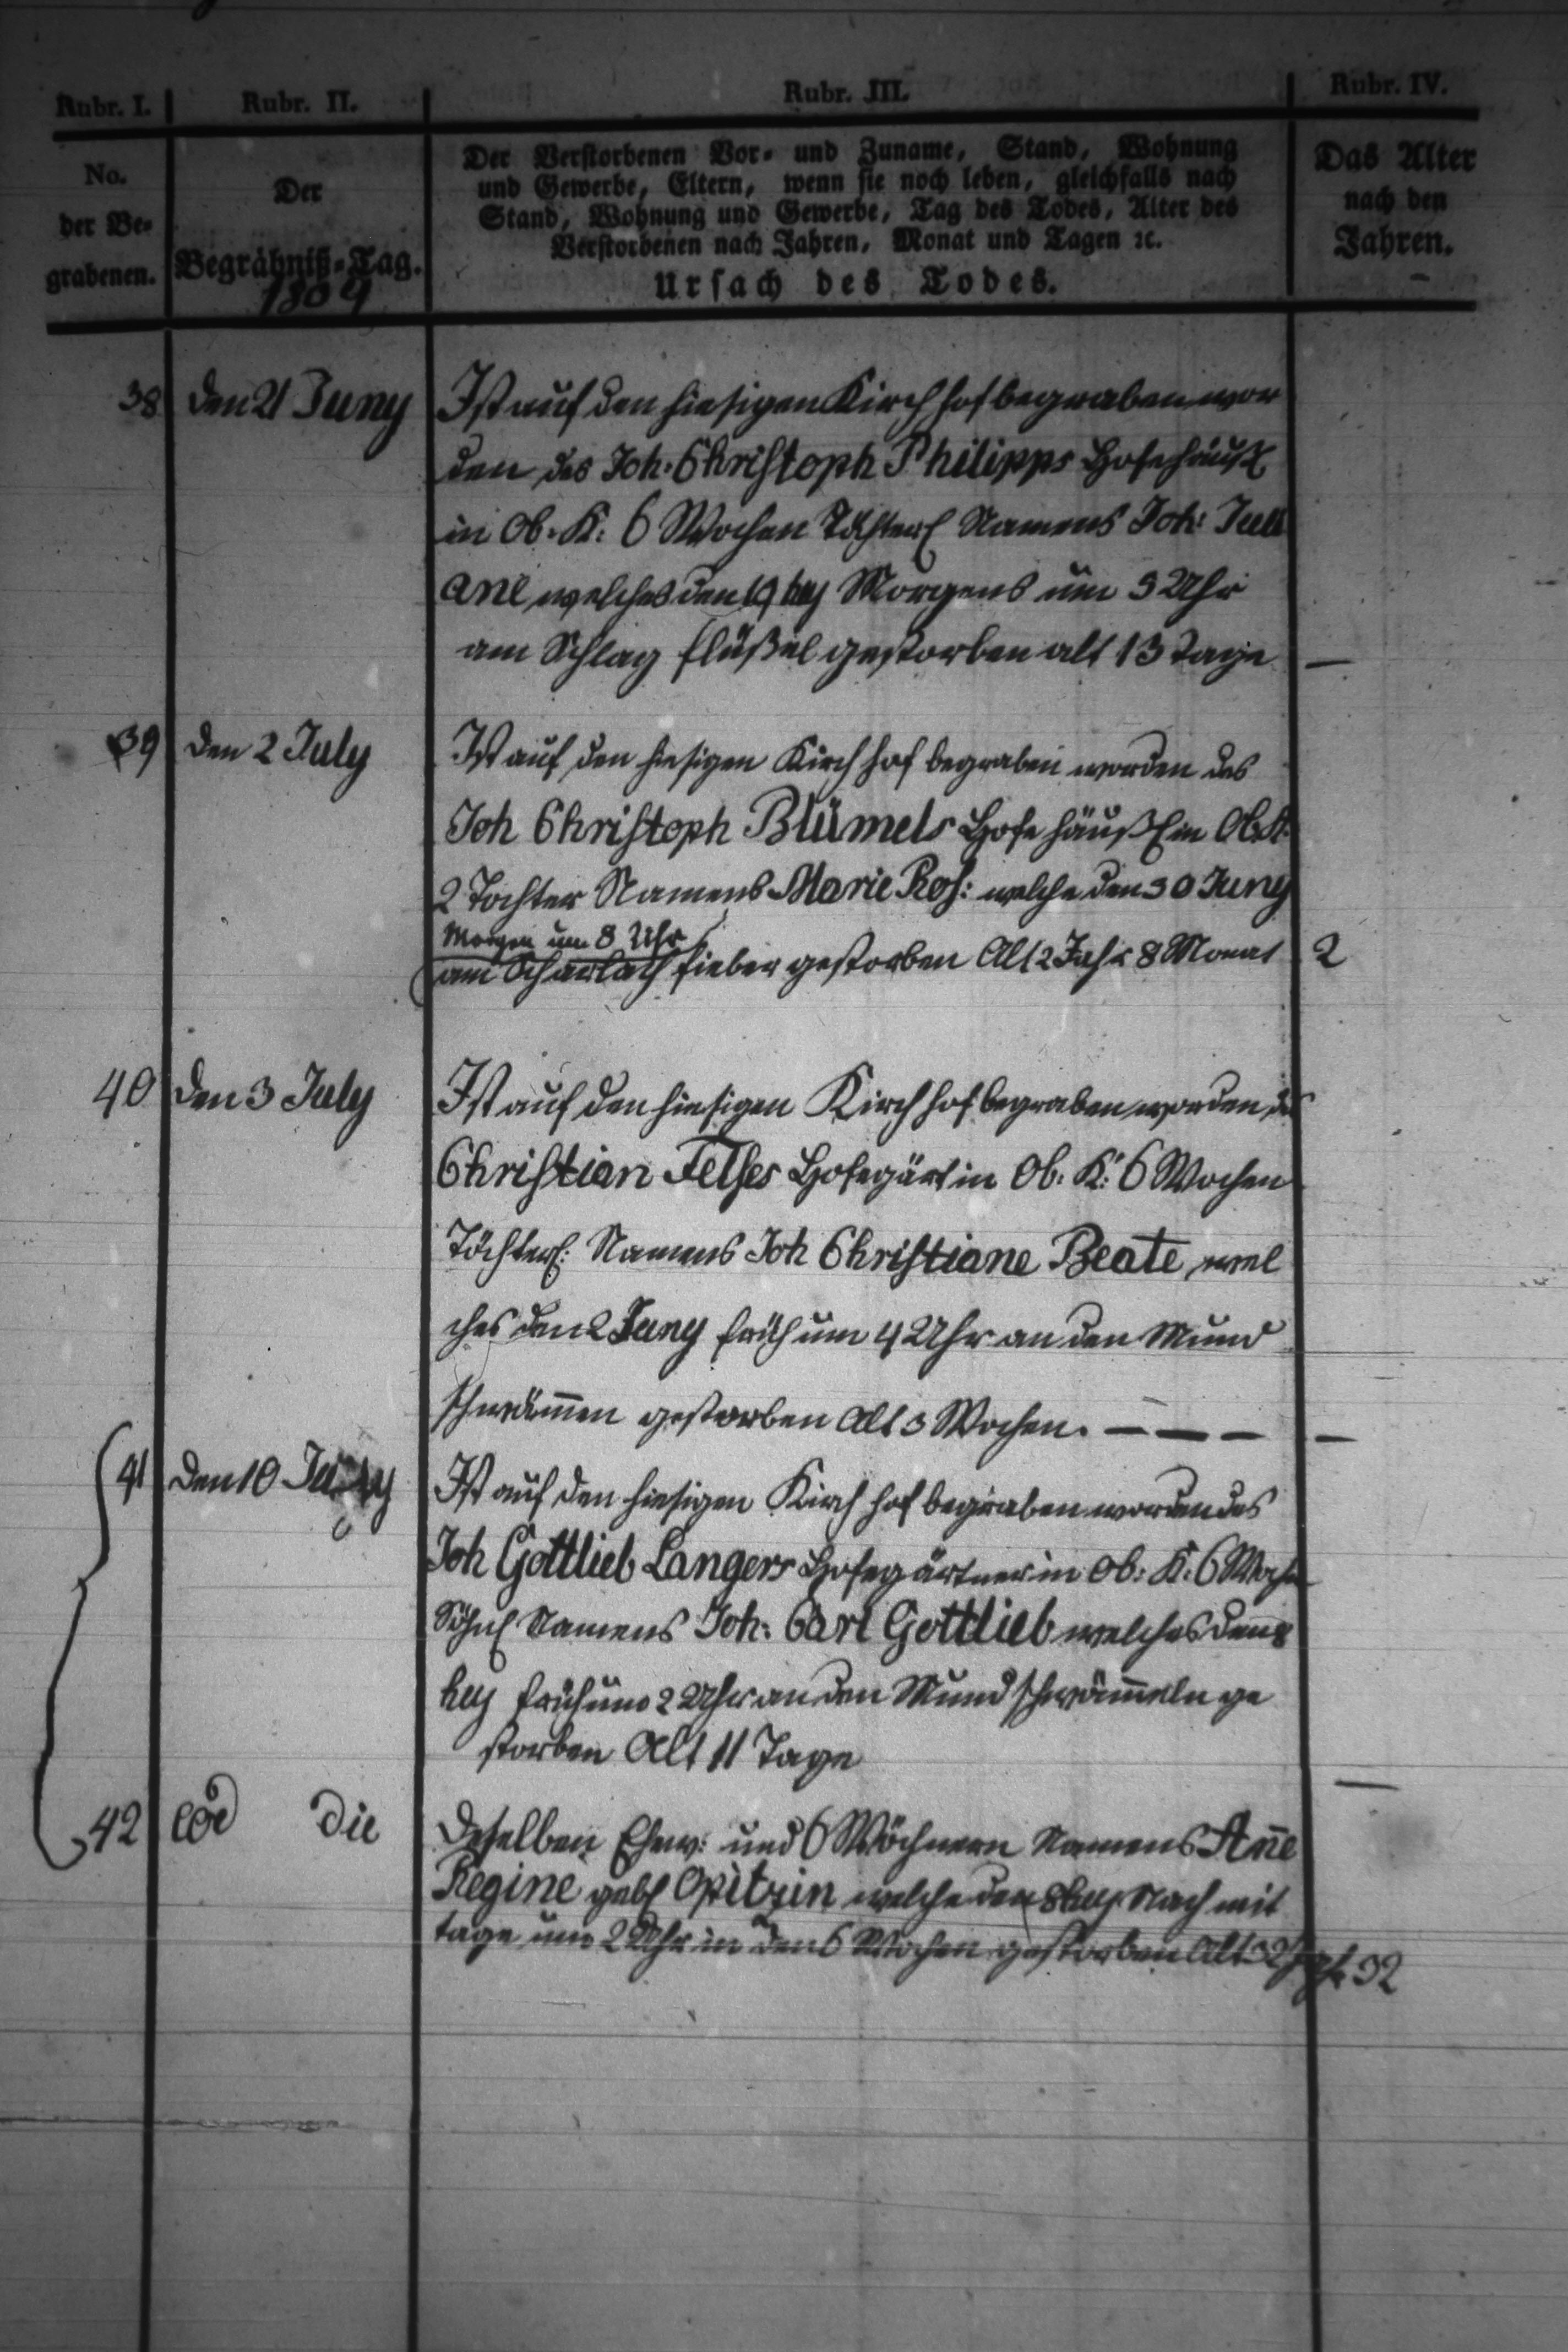 Rubr. I. Rubr. II. Rubr. III. Rubr. IV.
No. der Be- grabenen.
Der Begräbniß-Tag. 1809
Der Verstorbenen Vor- und Zuname, Stand, Wohnung
und Gewerbe, Eltern, wenn sie noch leben, gleichfalls nach
Stand, Wohnung und Gewerbe, Tag des Todes, Alter des
Verstorbenen nach Jahren, Monat und Tagen ꝛc.
Ursach des Todes.
Das Alter
nach den
Jahren.
38 den 21 Juny Ist auf den hiesigen Kirchhof begraben wor
den des Joh. Christoph Philipps Hofehäußl
in Ob. K: 6 Wochen Töchterl Namens Joh: Juli
ane welches den 19 huj Morgens um 3 Uhr
am Schlag flüßel gestorben alt 13 Tage —
39 den 2 July Ist auf den hiesigen Kirch hof begraben worden des
Joh Christoph Blümels Hofe häußl in Ob. K.
2 Tochter Namens Marie Ros: welche den 30 Juny
Morgen um 8 Uhr
am Scharlach fieber gestorben Alt 2 Jahr 8 Monat 2
40 den 3 July Ist auf den hiesigen Kirch hof begraben worden des
Christian Felses Hofegärt in Ob. K: 6 Wochen
Töchterl: Namens Joh Christiane Beate wel
ches den 2 Juny früh um 4 Uhr an den Mund
schwämen gestorben Alt 3 Wochen. — — — —
41 den 10 July Ist auf den hiesigen Kirch hof begraben worden des
Joh Gottlieb Langers Hofegärtner in Ob: K: 6 Woche
Söhnl Namens Joh: Carl Gottlieb welches den 8
huj früh um 2 Uhr an den Mund schwämeln ge
storben Alt 11 Tage —
42 eod die Deselben Ehew: und 6 Wöchnern Namens Añe
Regine gebl Opitzin welche den 8 huj. Nach mit
tage um 2 Uhr in den 6 Wochen gestorben Alt 32 Jahr 32